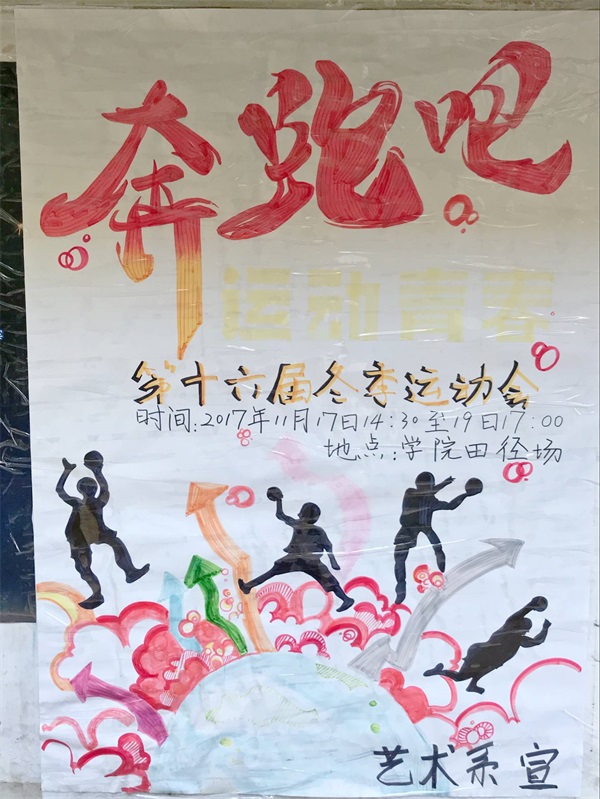 奔跑吧
运动青春
第十六届冬季运动会
时间:2017年11月17日14:30至19日17:00
地点:学院田径场
艺术系 宣